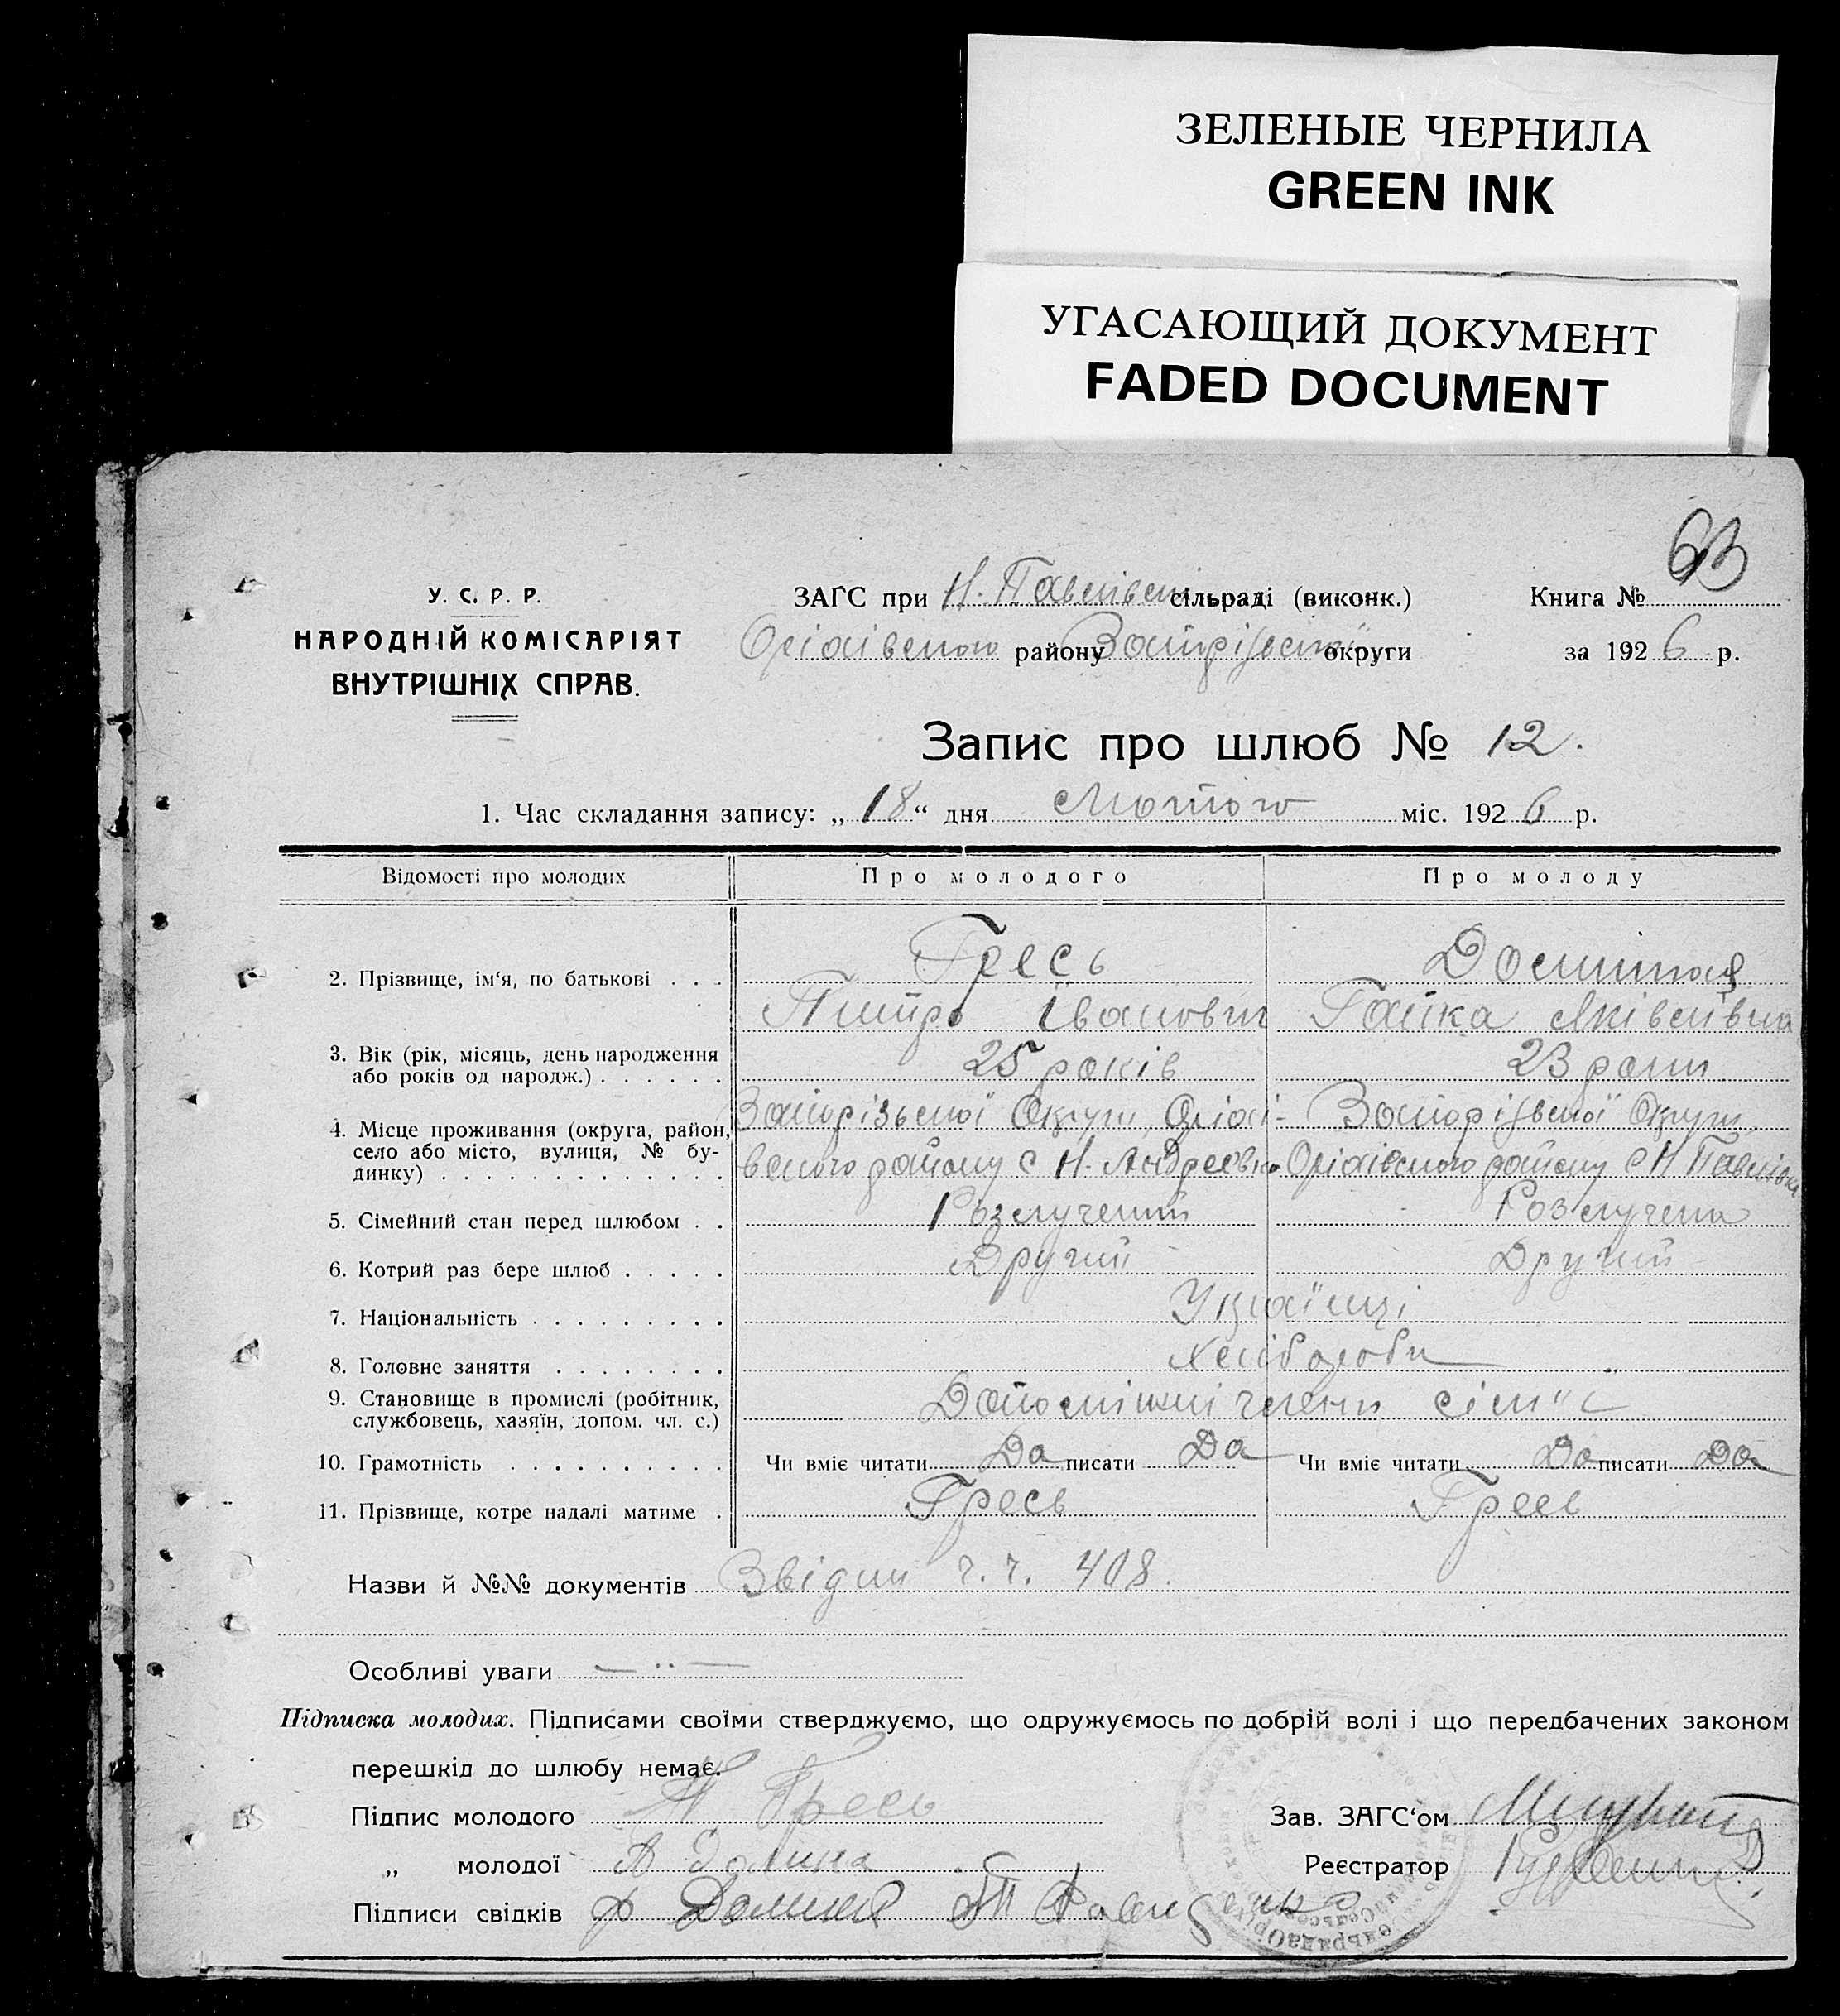 ЗЕЛЕНЫЕ ЧЕРНИЛА
GREEN INK
УГАСАЮЩИЙ ДОКУМЕНТ
FADED DOCUMENT
63
У. С. Р. Р.
НАРОДНІЙ КОМІСАРІЯТ
ВНУТРІШНІХ СПРАВ.
ЗАГС при Н. Павлівській сільраді (виконк.)
Книга №
Оріхівського району Запорізької округи
за 1926 р.
Запис про шлюб № 12.
1. Час складання запису: „18“ дня Лютого міс. 1926 р.
Відомості про молодих Про молодого Про молоду
2. Прізвище, ім‘я, по батькові . . . Гресь
Питро Іванович Ганка Яківлівна
3. Вік (рік, місяць, день народження
або років од народж.) . . . . . . 25 років 23 роки
4. Місце проживання (округа, район,
село або місто, вулиця, № бу-
динку) . . . . . . . . . . . . .
Запорізької Округи, Оріхі- Запорізької Округи,
вського району с Н. Андреєвка Оріхівского району с Н Павлівка
5. Сімейний стан перед шлюбом . . Розлучений Розлучена
6. Котрий раз бере шлюб . . . . . Другий Другий
7. Національність . . . . . . . . . Українці
8. Головне заняття . . . . . . . . Хлібороби
9. Становище в промислі (робітник,
службовець, хазяїн, допом. чл. с.) Допоміжні члени сім"ї
10. Грамотність . . . . . . . . . . Чи вміє читати Да писати Да Чи вміє читати Да писати Да
11. Прізвище, котре надалі матиме . Гресь Гресь
Назви й №№ документів Звідки ч. ч. 408.
Особливі уваги — ·· —
Підписка молодих. Підписами своїми стверджуємо, що одружуємось по добрій волі і що передбачених законом
перешкід до шлюбу немає.
Підпис молодого П Гресь
Зав. ЗАГС‘ом
„ молодої А Долина
Реєстратор
Підписи свідків